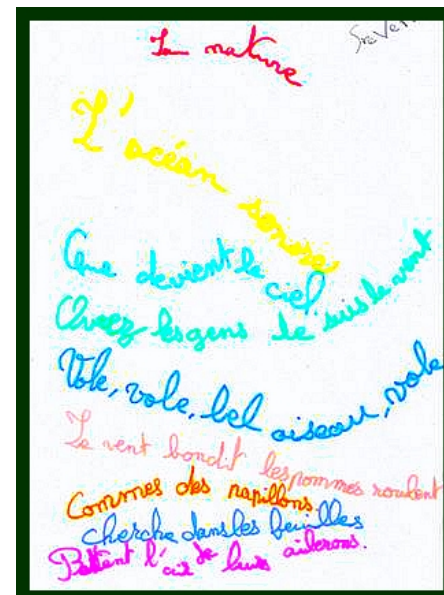 La nature
L'océan sonore
Que devient le ciel
Ouvrez les gens Je suis le vent
Vole, vole, bel oiseau, vole
Le vent bondit les pommes roulent
Commes des papillons
cherche dans les feuilles
Battent l'air de leurs ailerons.